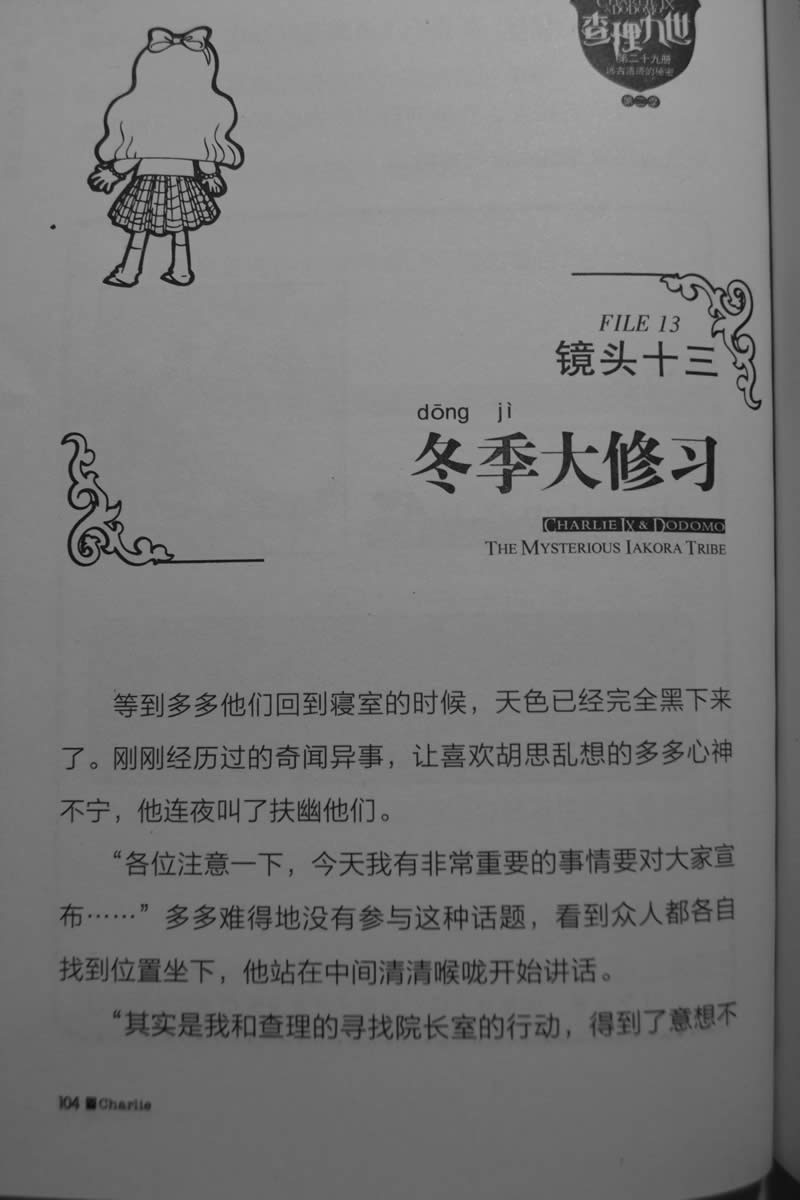 查理九世
第二十九册
第二季
FILE 13
镜头十三
dōng jì
冬季大修习
CHARLIE IX & DODOMO
THE MYSTERIOUS IAKORA TRIBE
等到多多他们回到寝室的时候，天色已经完全黑下来
了。刚刚经历过的奇闻异事，让喜欢胡思乱想的多多心神
不宁，他连夜叫了扶幽他们。
“各位注意一下，今天我有非常重要的事情要对大家宣
布……”多多难得地没有参与这种话题，看到众人都各自
找到位置坐下，他站在中间清清喉咙开始讲话。
“其实是我和查理的寻找院长室的行动，得到了意想不
104 Charlie